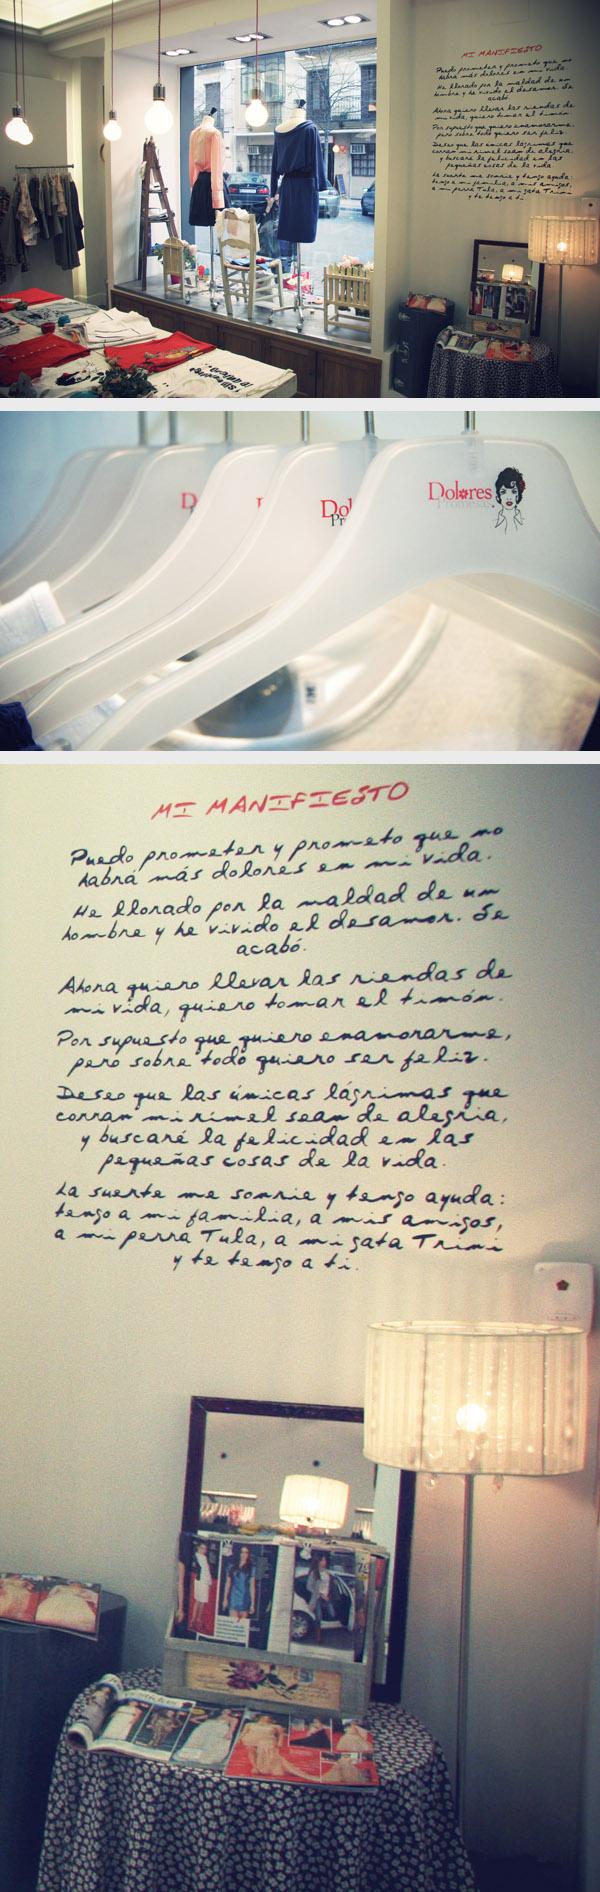 MI MANIFIESTO
Puedo prometer y prometo que no
habrá más dolores en mi vida.
He llorado por la maldad de un
hombre y he vivido el desamor. Se
acabó.
Ahora quiero llevar las riendas de
mi vida, quiero tomar el timón.
Por supuesto que quiero enamorarme,
pero sobre todo quiero ser feliz.
Deseo que las únicas lágrimas que
corran mi rímel sean de alegría,
y buscaré la felicidad en las
pequeñas cosas de la vida
La suerte me sonríe y tengo ayuda:
tengo a mi familia, a mis amigos,
a mi perra Tula, a mi gata Trini
y te tengo a ti
D
Dol
Pr
Dolores
Promesas
MI MANIFIESTO
Puedo prometer y prometo que no
habrá más dolores en mi vida.
He llorado por la maldad de un
hombre y he vivido el desamor. Se
acabó.
Ahora quiero llevar las riendas de
mi vida, quiero tomar el timón.
Por supuesto que quiero enamorarme,
pero sobre todo quiero ser feliz.
Deseo que las únicas lágrimas que
corran mi rímel sean de alegria,
y buscaré la felicidad en las
pequeñas cosas de la vida.
La suerte me sonrie y tengo ayuda:
tengo a mi familia, a mis amigos,
a mi perra Tula, a mi gata Trini
y te tengo a ti.